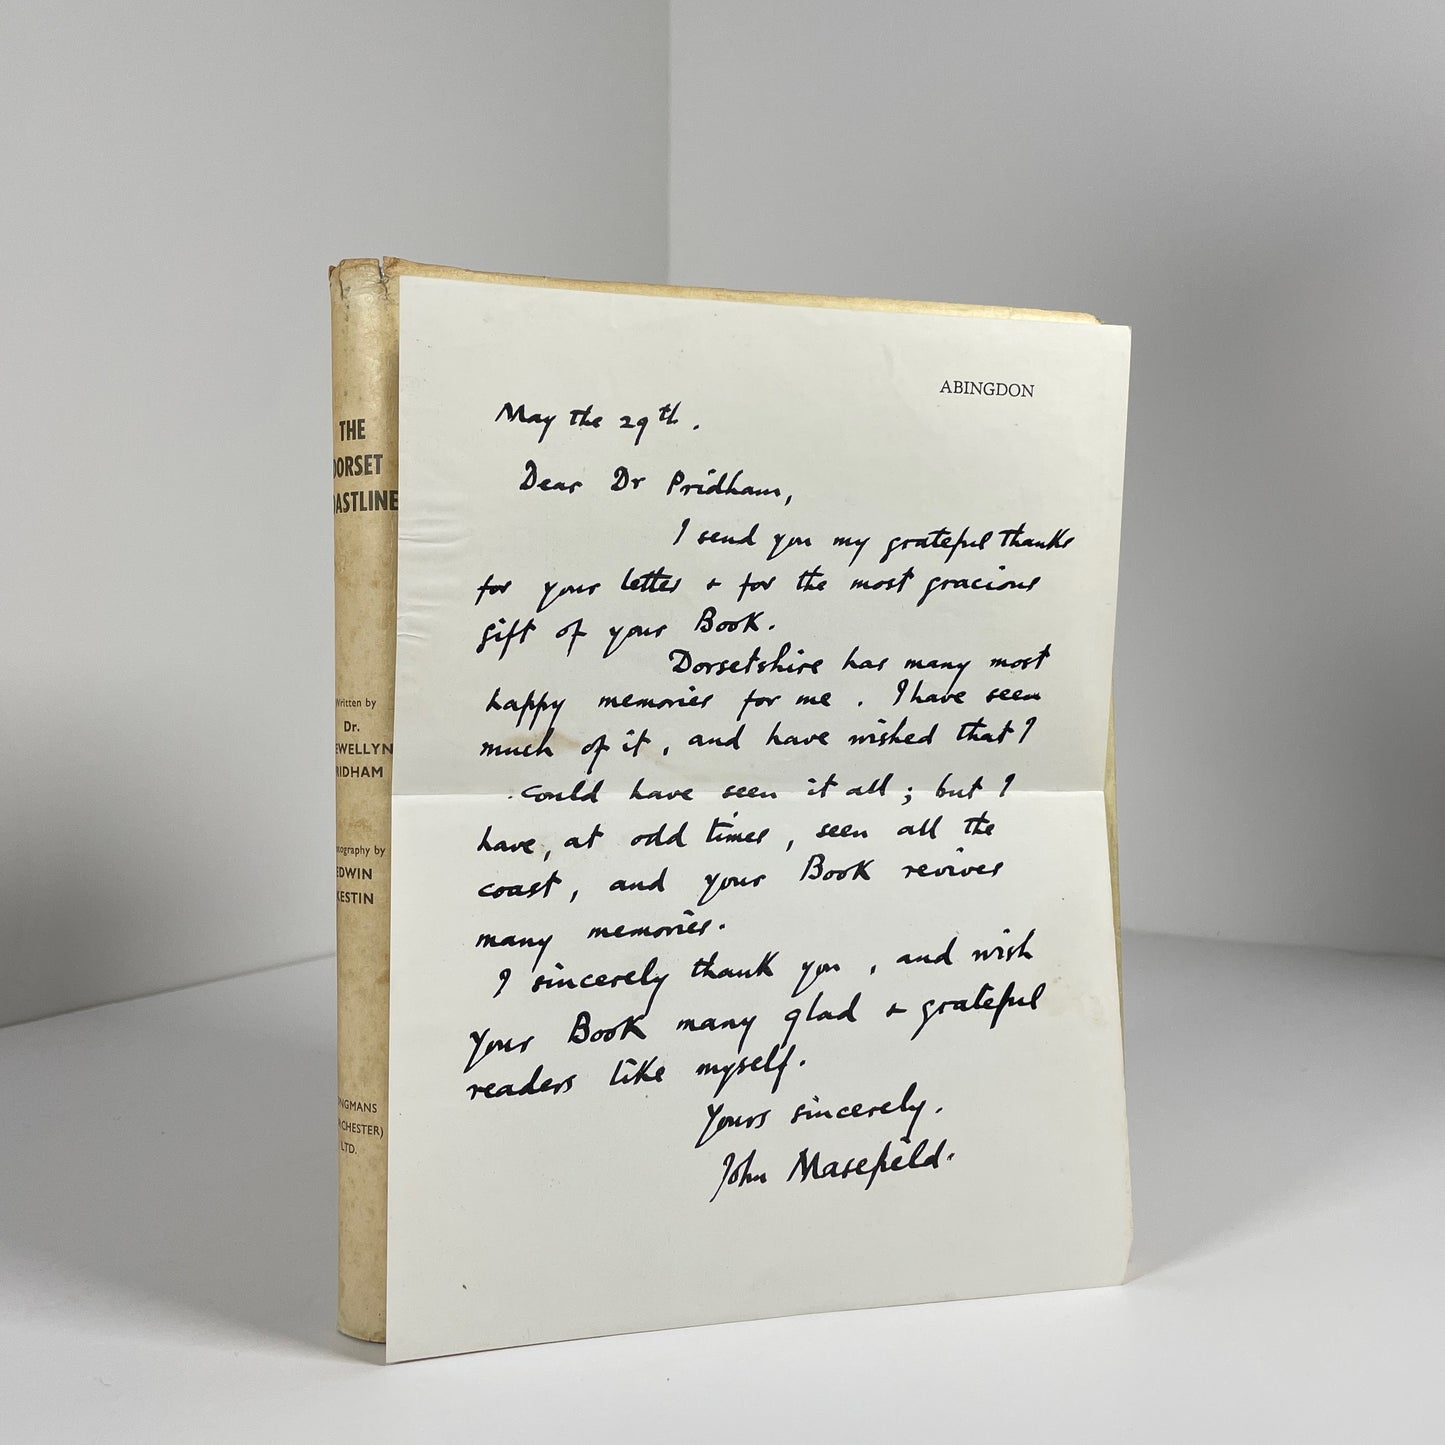 THE
DORSET
COASTLINE
Written by
Dr.
LLEWELLYN
PRIDHAM
Photography by
EDWIN
KESTIN
LONGMANS
(DORCHESTER)
LTD.
ABINGDON
May the 29th.
Dear Dr Pridham,
I send you my grateful thanks
for your letter & for the most gracious
gift of your Book.
Dorsetshire has many most
happy memories for me. I have seen
much of it, and have wished that I
could have seen it all; but I
have, at odd times, seen all the
coast, and your Book revives
many memories.
I sincerely thank you, and wish
your Book many glad & grateful
readers like myself.
Yours sincerely.
John Masefield.